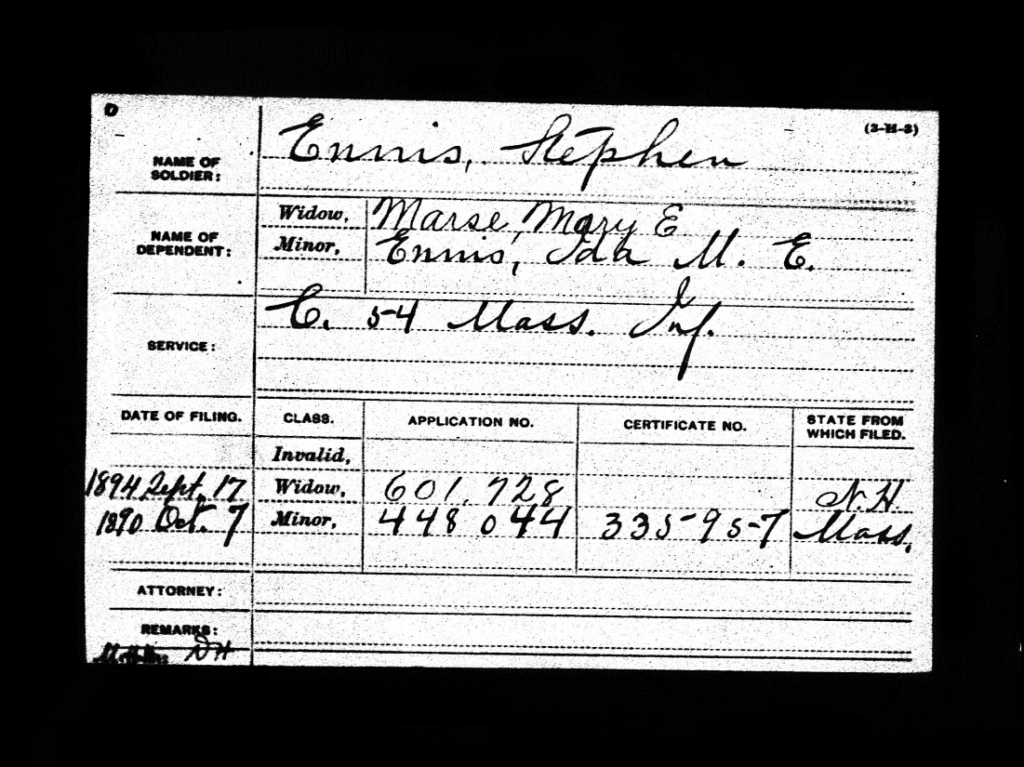 (3-H-3)
NAME OF SOLDIER: Ennis, Stephen
NAME OF DEPENDENT: Widow, Marse, Mary E
Minor, Ennis, Ida M. E.
SERVICE: C. 54 Mass. Inf.
DATE OF FILING. CLASS. APPLICATION NO. CERTIFICATE NO. STATE FROM WHICH FILED.
Invalid,
1894 Sept. 17 Widow, 601.728 N.H
1890 Oct. 7 Minor, 448 044 335957 Mass.
ATTORNEY:
REMARKS: